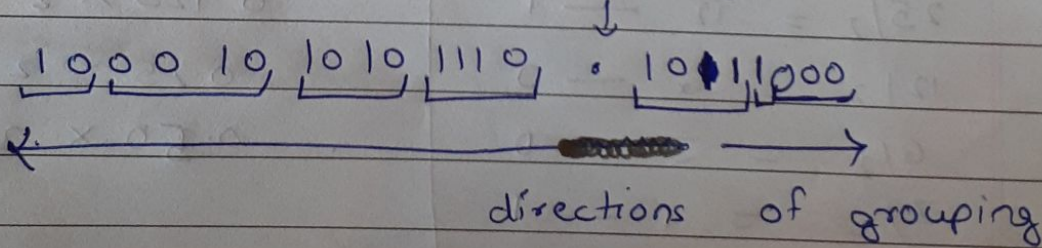 10 0010 1010 1110 . 1011 1000
directions of grouping